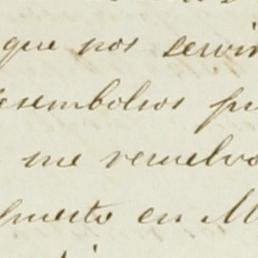 que nos servi
desembolsos p
me resuelvo
puesto en M